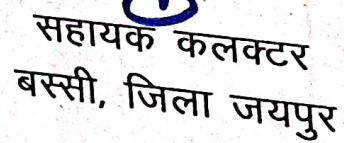 सहायक कलक्टर
बस्सी, जिला जयपुर